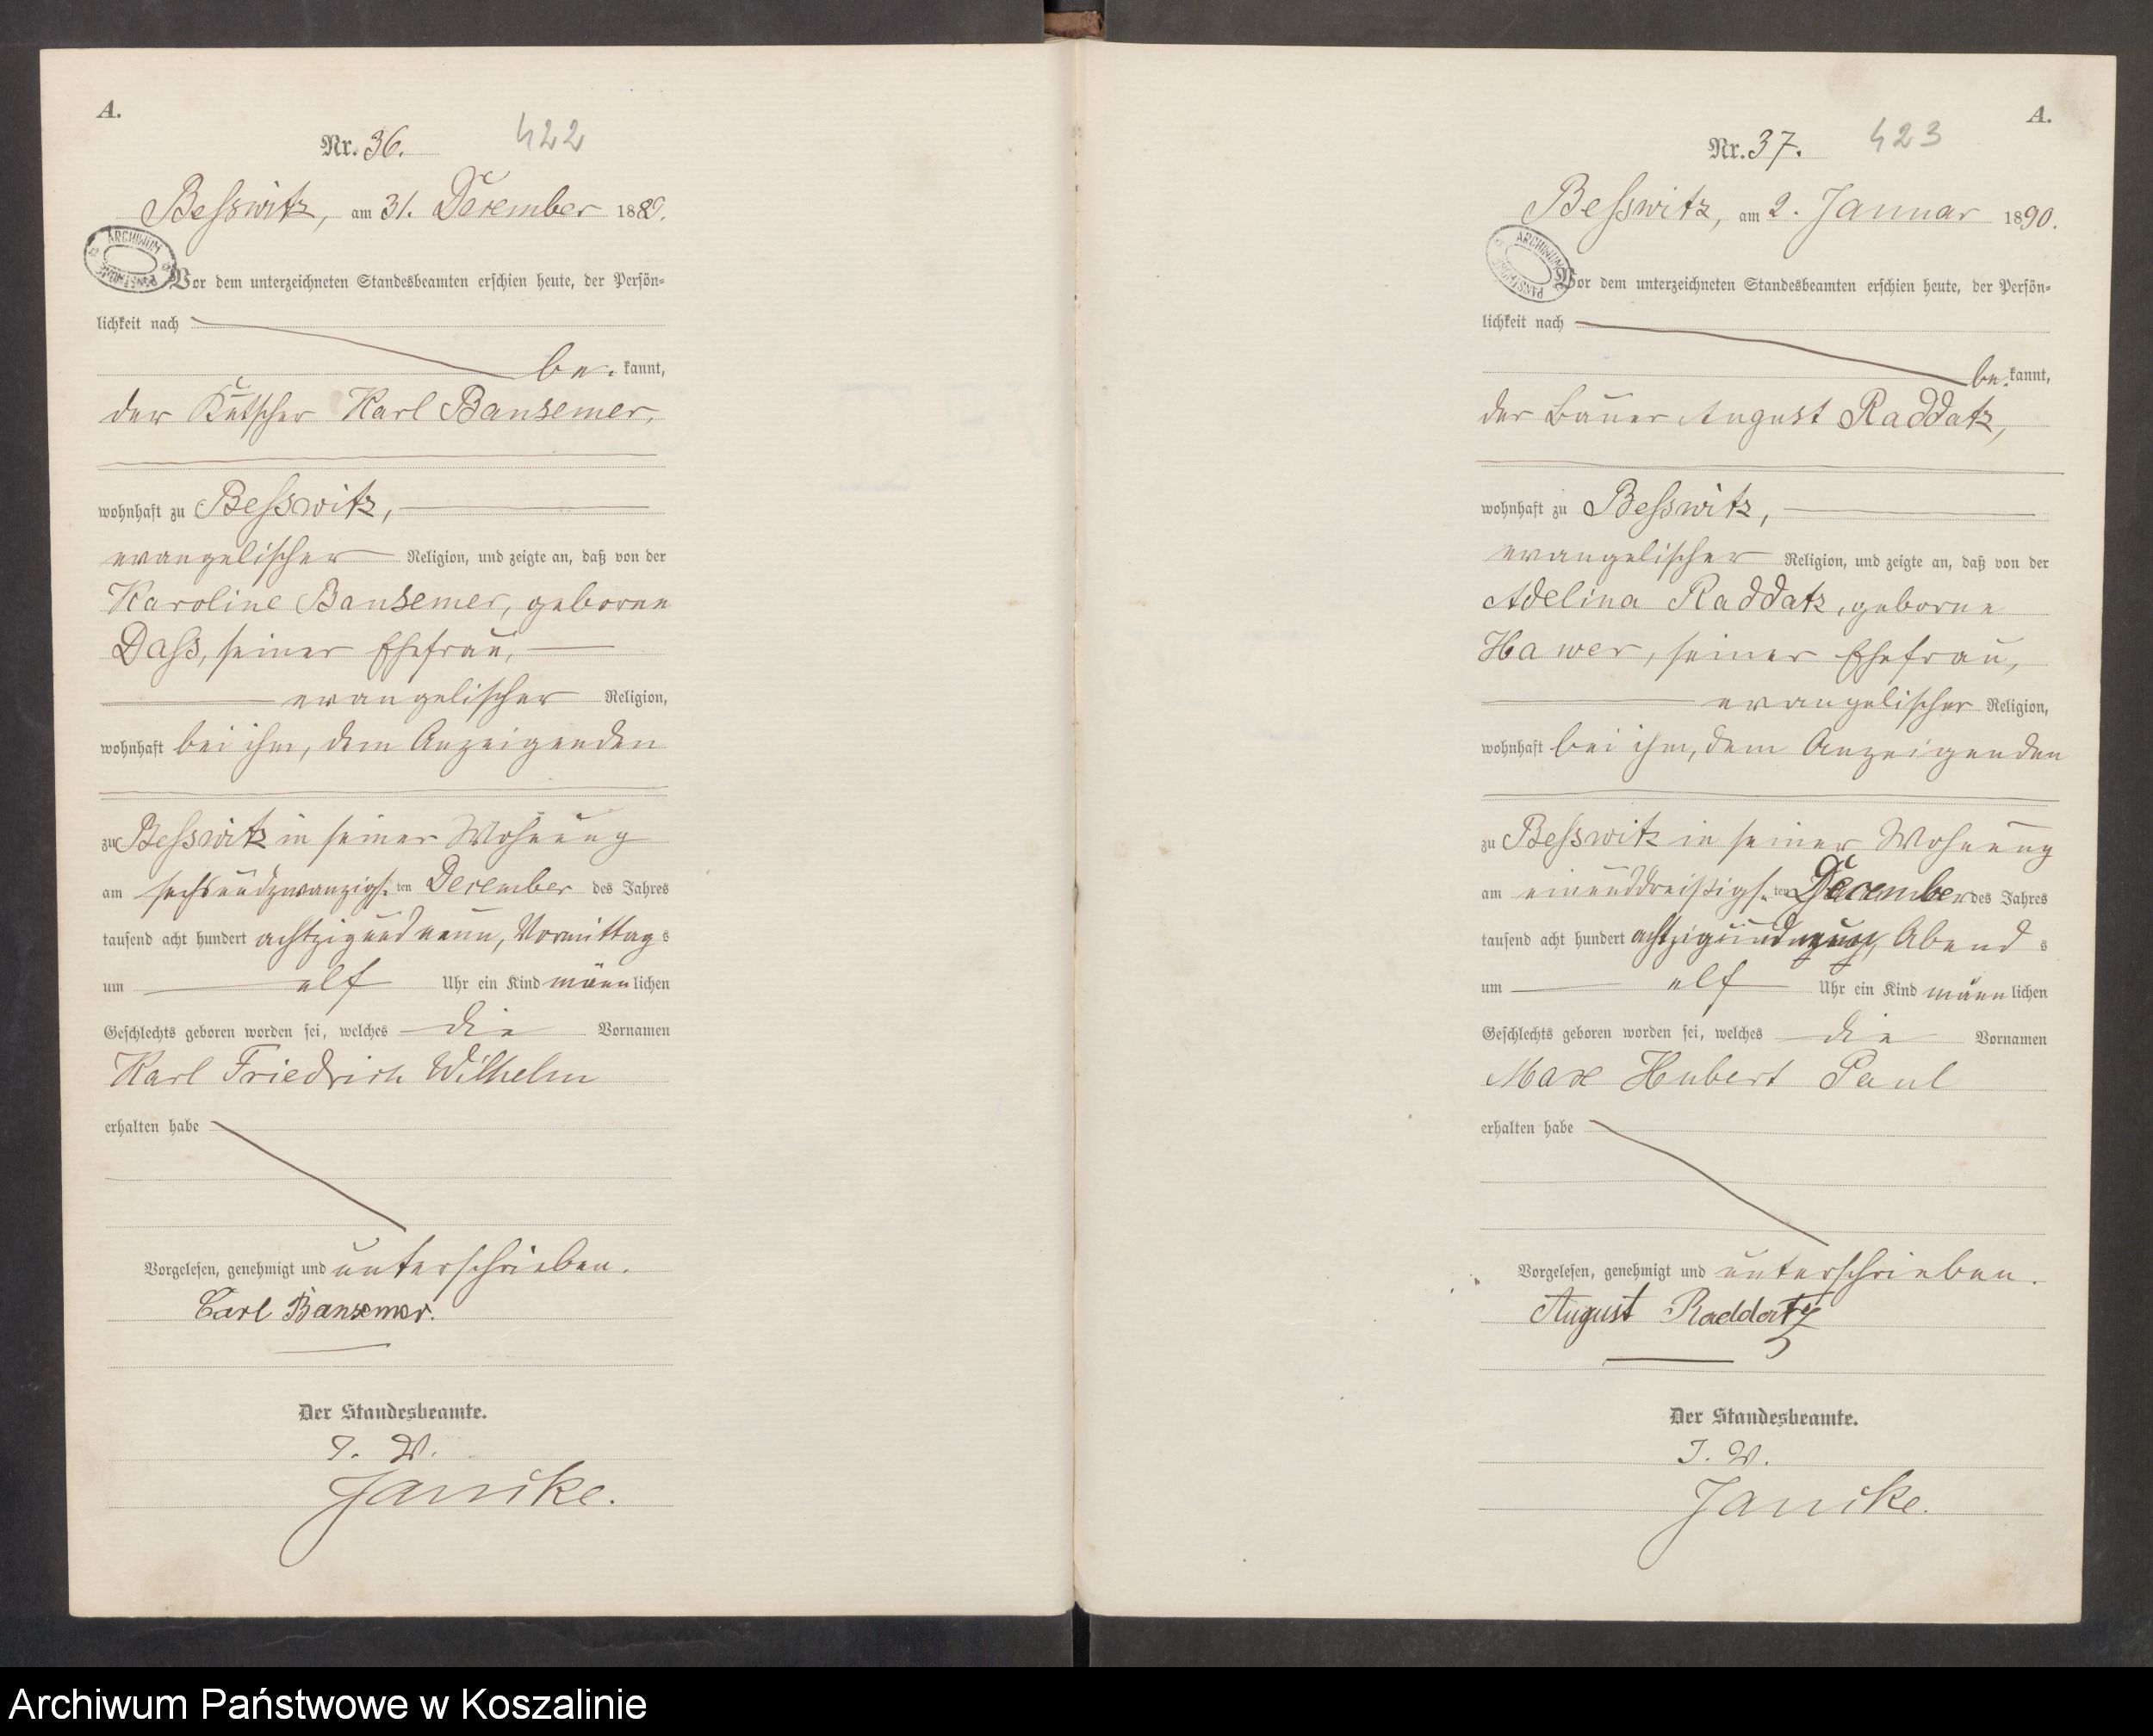 A.
Nr. 36. 422
Beſswitz, am 31. December 1889.
ARCHIWUM PAŃSTWOWE
Vor dem unterzeichneten Standesbeamten erſchien heute, der Perſön-
lichkeit nach
be. kannt,
der Kutſcher Karl Bansemer,
wohnhaft zu Beſswitz,
evangeliſcher Religion, und zeigte an, daß von der
Karoline Bansemer, geborne
Daſs, ſeiner Ehefrau,
evangeliſcher Religion,
wohnhaft bei ihm, dem Anzeigenden
zu Beſswitz in ſeiner Wohnung
am ſechsundzwanzigſ. ten December des Jahres
tauſend acht hundert achtzigundneun, Vormittags
um elf Uhr ein Kind männlichen
Geſchlechts geboren worden ſei, welches die Vornamen
Karl Friedrich Wilhelm
erhalten habe
Vorgeleſen, genehmigt und unterſchrieben.
Carl Bansemer.
Der Standesbeamte.
J. V.
Jancke.
A.
Nr. 37. 423
Beſswitz, am 2. Januar 1890.
ARCHIWUM PAŃSTWOWE
Vor dem unterzeichneten Standesbeamten erſchien heute, der Perſön-
lichkeit nach
be. kannt,
der Bauer August Raddatz,
wohnhaft zu Beſswitz,
evangeliſcher Religion, und zeigte an, daß von der
Adelina Raddatz, geborne
Hawer, ſeiner Ehefrau,
evangeliſcher Religion,
wohnhaft bei ihm, dem Anzeigenden
zu Beſswitz in ſeiner Wohnung
am einunddreißigſ. ten December des Jahres
tauſend acht hundert achtzigundneun, Abends
um elf Uhr ein Kind männlichen
Geſchlechts geboren worden ſei, welches die Vornamen
Max Hubert Paul
erhalten habe
Vorgeleſen, genehmigt und unterſchrieben.
August Raddatz
Der Standesbeamte.
J. V.
Jancke.
Archiwum Państwowe w Koszalinie